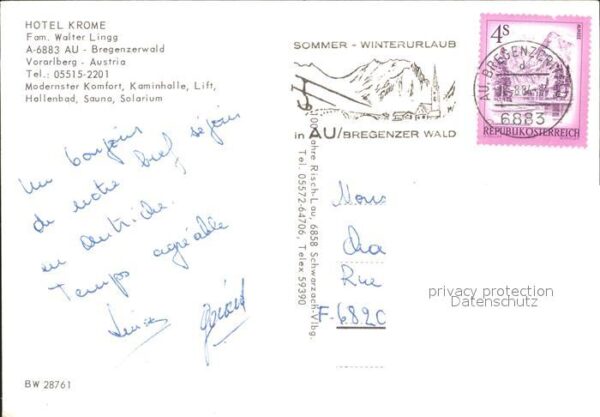 HOTEL KROME
Fam. Walter Lingg
A-6883 AU - Bregenzerwald
Vorarlberg - Austria
Tel.: 05515-2201
Modernster Komfort, Kaminhalle, Lift,
Hallenbad, Sauna, Solarium
Un bonjour
de notre bref séjour
en Autriche.
Temps agréable
Gérard
BW 28761
SOMMER - WINTERURLAUB
in AU/BREGENZER WALD
4S
AU, BREGENZERWALD
6883
REPUBLIK ÖSTERREICH
100 Jahre Risch-Lau, 6858 Schwarzach-Vlbg.
Tel. 05572-64706, Telex 59390
Rue
F-682
privacy protection
Datenschutz